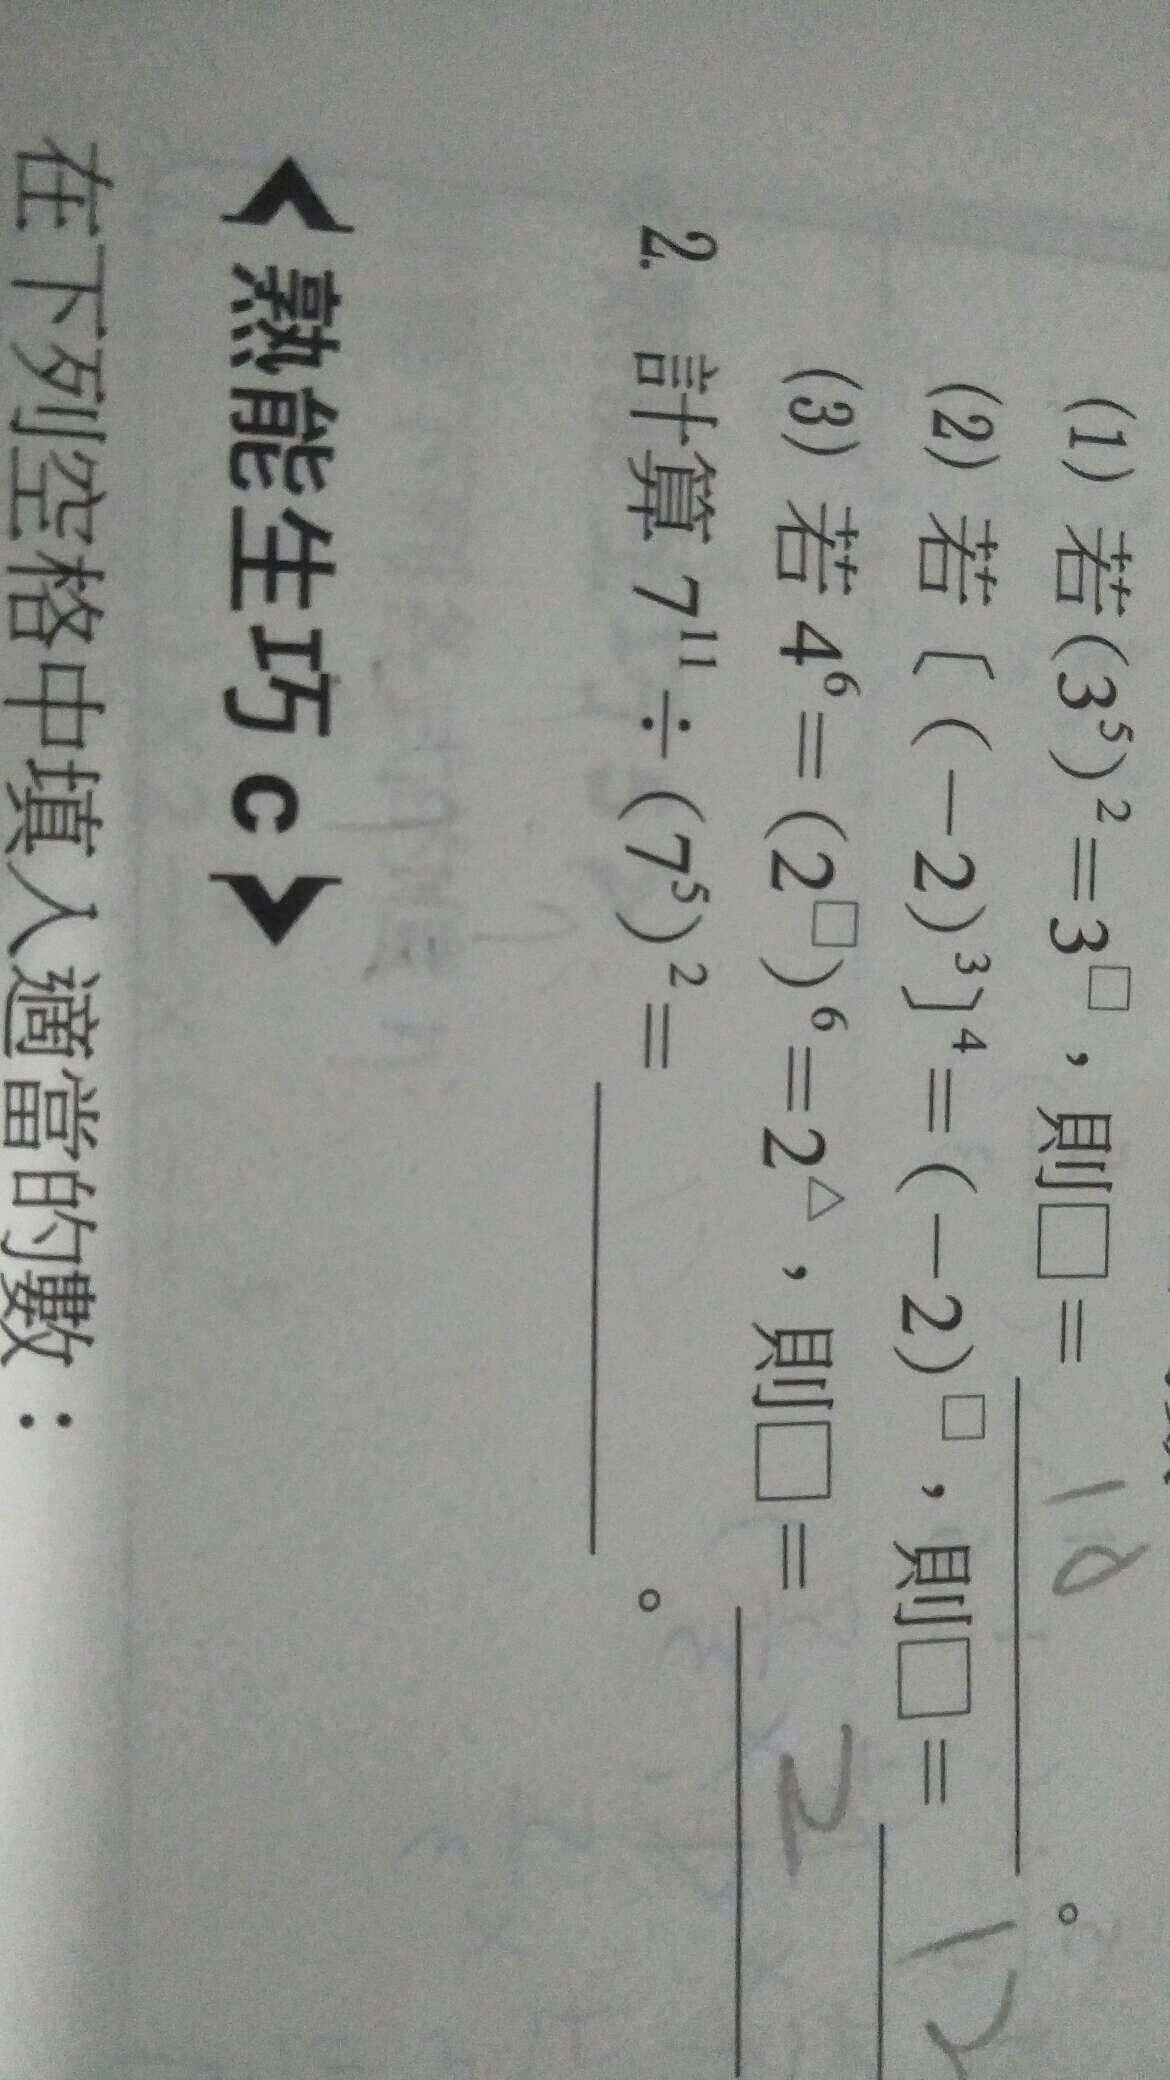 (1) 若(3⁵)²=3□，則□= 10。
(2) 若〔(-2)³〕⁴=(-2)□，則□= 12
(3) 若4⁶=(2□)⁶=2△，則□= 2
2. 計算 7¹¹÷(7⁵)²= 。
熟能生巧 c
在下列空格中填入適當的數：